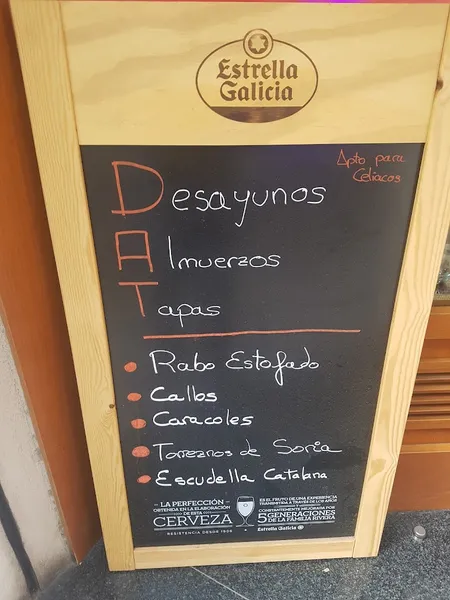 Estrella
Galicia
Apto para
Celiacos
Desayunos
Almuerzos
Tapas
Rabo Estofado
Callos
Caracoles
Torreznos de Soria
Escudella Catalana
LA PERFECCIÓN
OBTENIDA EN LA ELABORACIÓN
DE ESTA
CERVEZA
RESISTENCIA DESDE 1906
ES EL FRUTO DE UNA EXPERIENCIA
TRANSMITIDA A TRAVÉS DE LOS AÑOS
CONSTANTEMENTE MEJORADA POR
5 GENERACIONES
DE LA FAMILIA RIVERA
Estrella Galicia